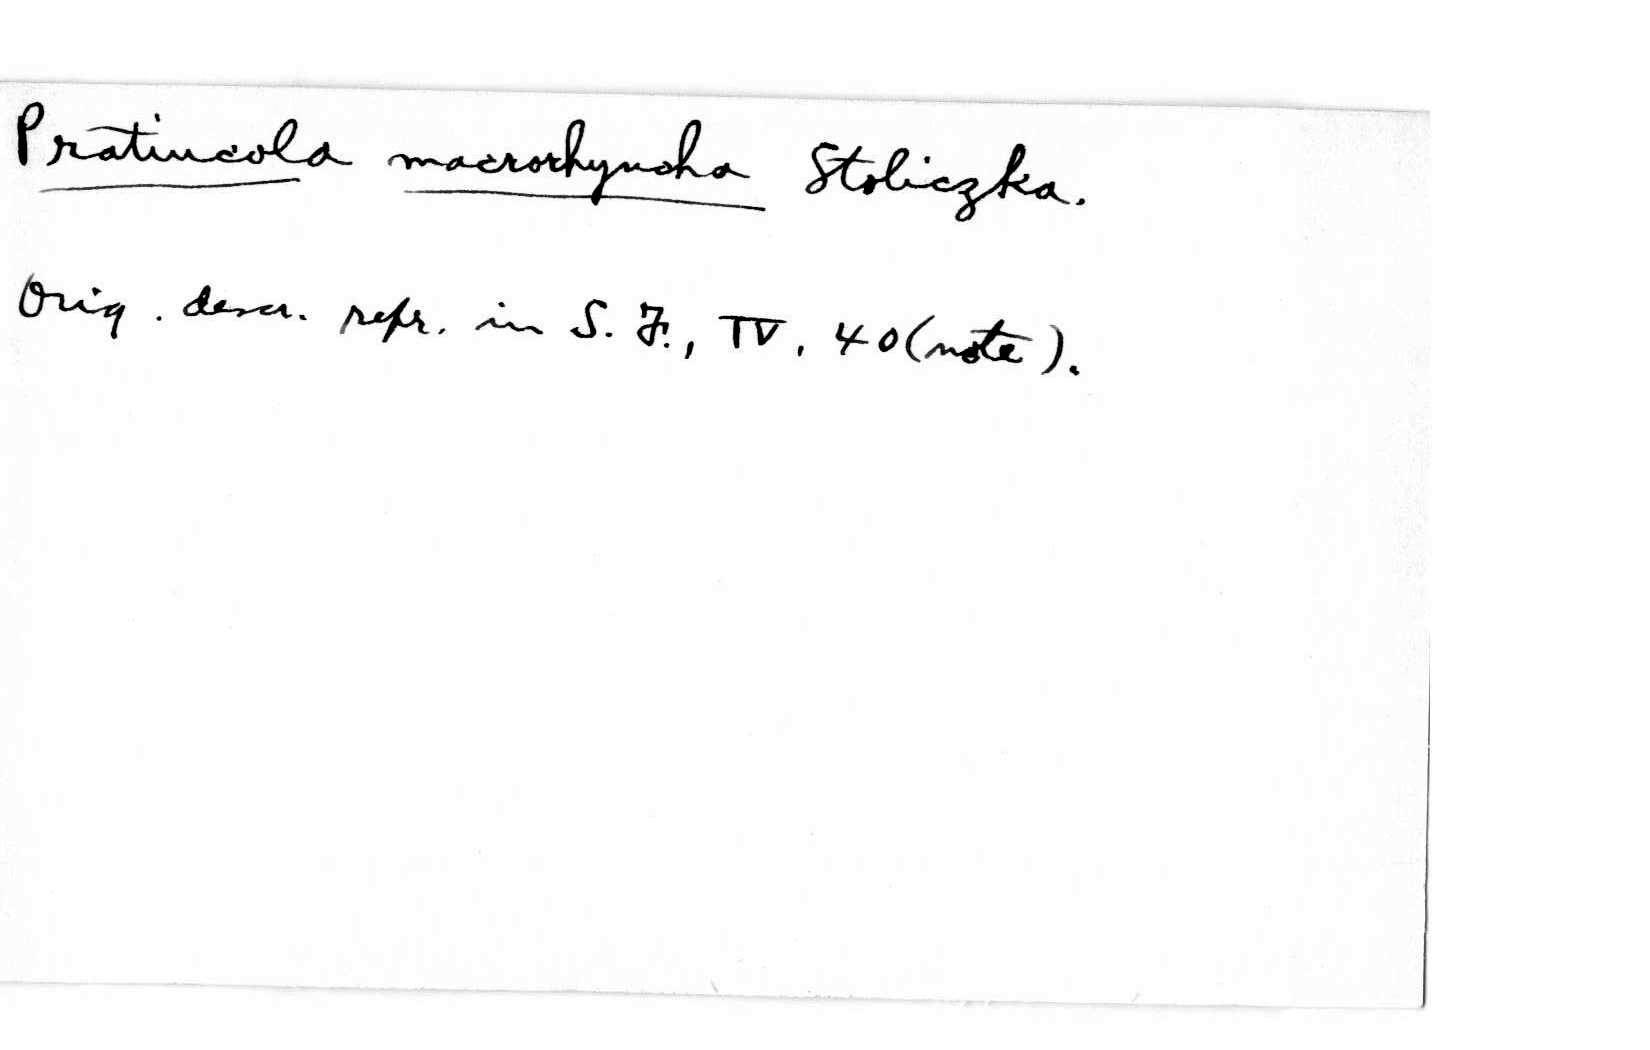 Pratincola macrorhyncha Stoliczka.
Orig. descr. repr. in S. F., IV, 40 (note).